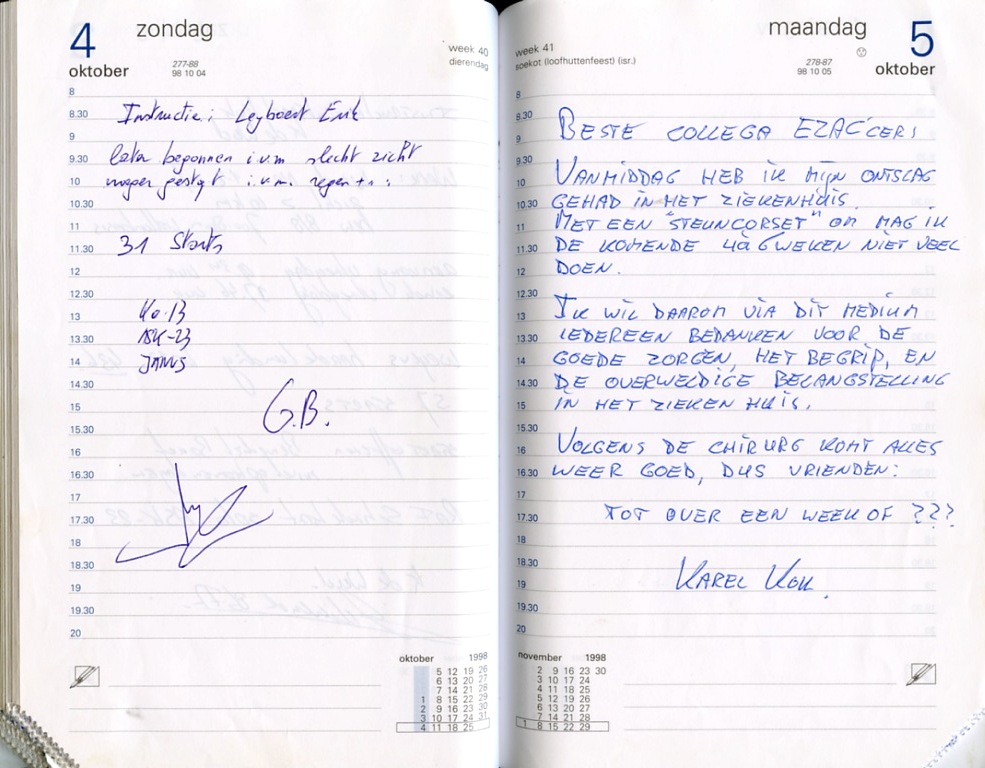 4 zondag
oktober
277-88
98 10 04
week 40
dierendag
8
8.30 Instructie: Leyboert Erik
9
9.30 later begonnen i.v.m slecht zicht
10 gestopt i.v.m. regen
10.30
11
11.30 31 Starts
12
12.30
13 Ka-13
13.30 ASK-23
14 JANUS
14.30
15 G.B.
15.30
16
16.30
17
17.30
18
18.30
19
19.30
20
oktober 1998
5 12 19 26
6 13 20 27
7 14 21 28
1 8 15 22 29
2 9 16 23 30
3 10 17 24 31
4 11 18 25
maandag 5
oktober
week 41
soekot (loofhuttenfeest) (isr.)
278-87
98 10 05
8
8.30
9 BESTE COLLEGA EZAC'CERS
9.30
10 VANMIDDAG HEB IK MIJN ONTSLAG
10.30 GEHAD IN HET ZIEKENHUIS.
11 MET EEN "STEUNCORSET" OM MAG IK
11.30 DE KOMENDE 4 à 6 WEKEN NIET VEEL
12 DOEN.
12.30
13 IK WIL DAAROM VIA DIT MEDIUM
13.30 IEDEREEN BEDANKEN VOOR DE
14 GOEDE ZORGEN, HET BEGRIP, EN
14.30 DE OVERWELDIGE BELANGSTELLING
15 IN HET ZIEKENHUIS.
15.30
16 VOLGENS DE CHIRURG KOMT ALLES
16.30 WEER GOED, DUS VRIENDEN:
17
17.30 TOT OVER EEN WEEK OF ???
18
18.30
19 KAREL KOK.
19.30
20
november 1998
2 9 16 23 30
3 10 17 24
4 11 18 25
5 12 19 26
6 13 20 27
7 14 21 28
1 8 15 22 29